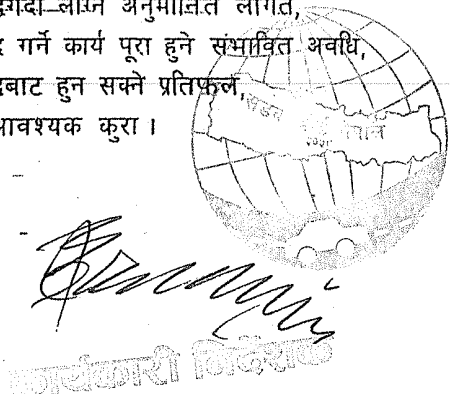 लाग्ने अनुमानित लागत,
गर्ने कार्य पूरा हुने संभावित अवधि,
बाट हुन सक्ने प्रतिफल,
आवश्यक कुरा ।
सडक बोर्ड नेपाल
कार्यकारी निर्देशक